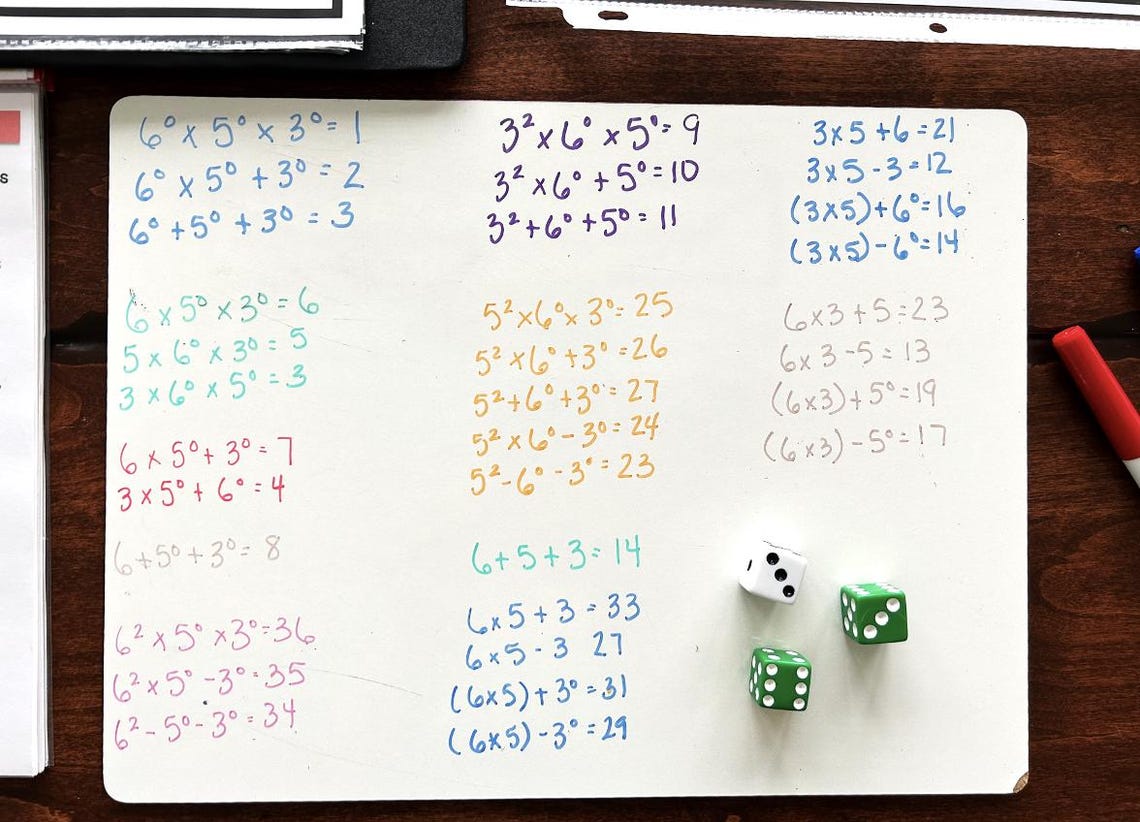 6⁰ x 5⁰ x 3⁰ = 1
6⁰ x 5⁰ + 3⁰ = 2
6⁰ + 5⁰ + 3⁰ = 3
6 x 5⁰ x 3⁰ = 6
5 x 6⁰ x 3⁰ = 5
3 x 6⁰ x 5⁰ = 3
6 x 5⁰ + 3⁰ = 7
3 x 5⁰ + 6⁰ = 4
6 + 5⁰ + 3⁰ = 8
6² x 5⁰ x 3⁰ = 36
6² x 5⁰ - 3⁰ = 35
6² - 5⁰ - 3⁰ = 34
3² x 6⁰ x 5⁰ = 9
3² x 6⁰ + 5⁰ = 10
3² + 6⁰ + 5⁰ = 11
5² x 6⁰ x 3⁰ = 25
5² x 6⁰ + 3⁰ = 26
5² + 6⁰ + 3⁰ = 27
5² x 6⁰ - 3⁰ = 24
5² - 6⁰ - 3⁰ = 23
6 + 5 + 3 = 14
6 x 5 + 3 = 33
6 x 5 - 3 27
(6 x 5) + 3⁰ = 31
(6 x 5) - 3⁰ = 29
3 x 5 + 6 = 21
3 x 5 - 3 = 12
(3 x 5) + 6⁰ = 16
(3 x 5) - 6⁰ = 14
6 x 3 + 5 = 23
6 x 3 - 5 = 13
(6 x 3) + 5⁰ = 19
(6 x 3) - 5⁰ = 17
s